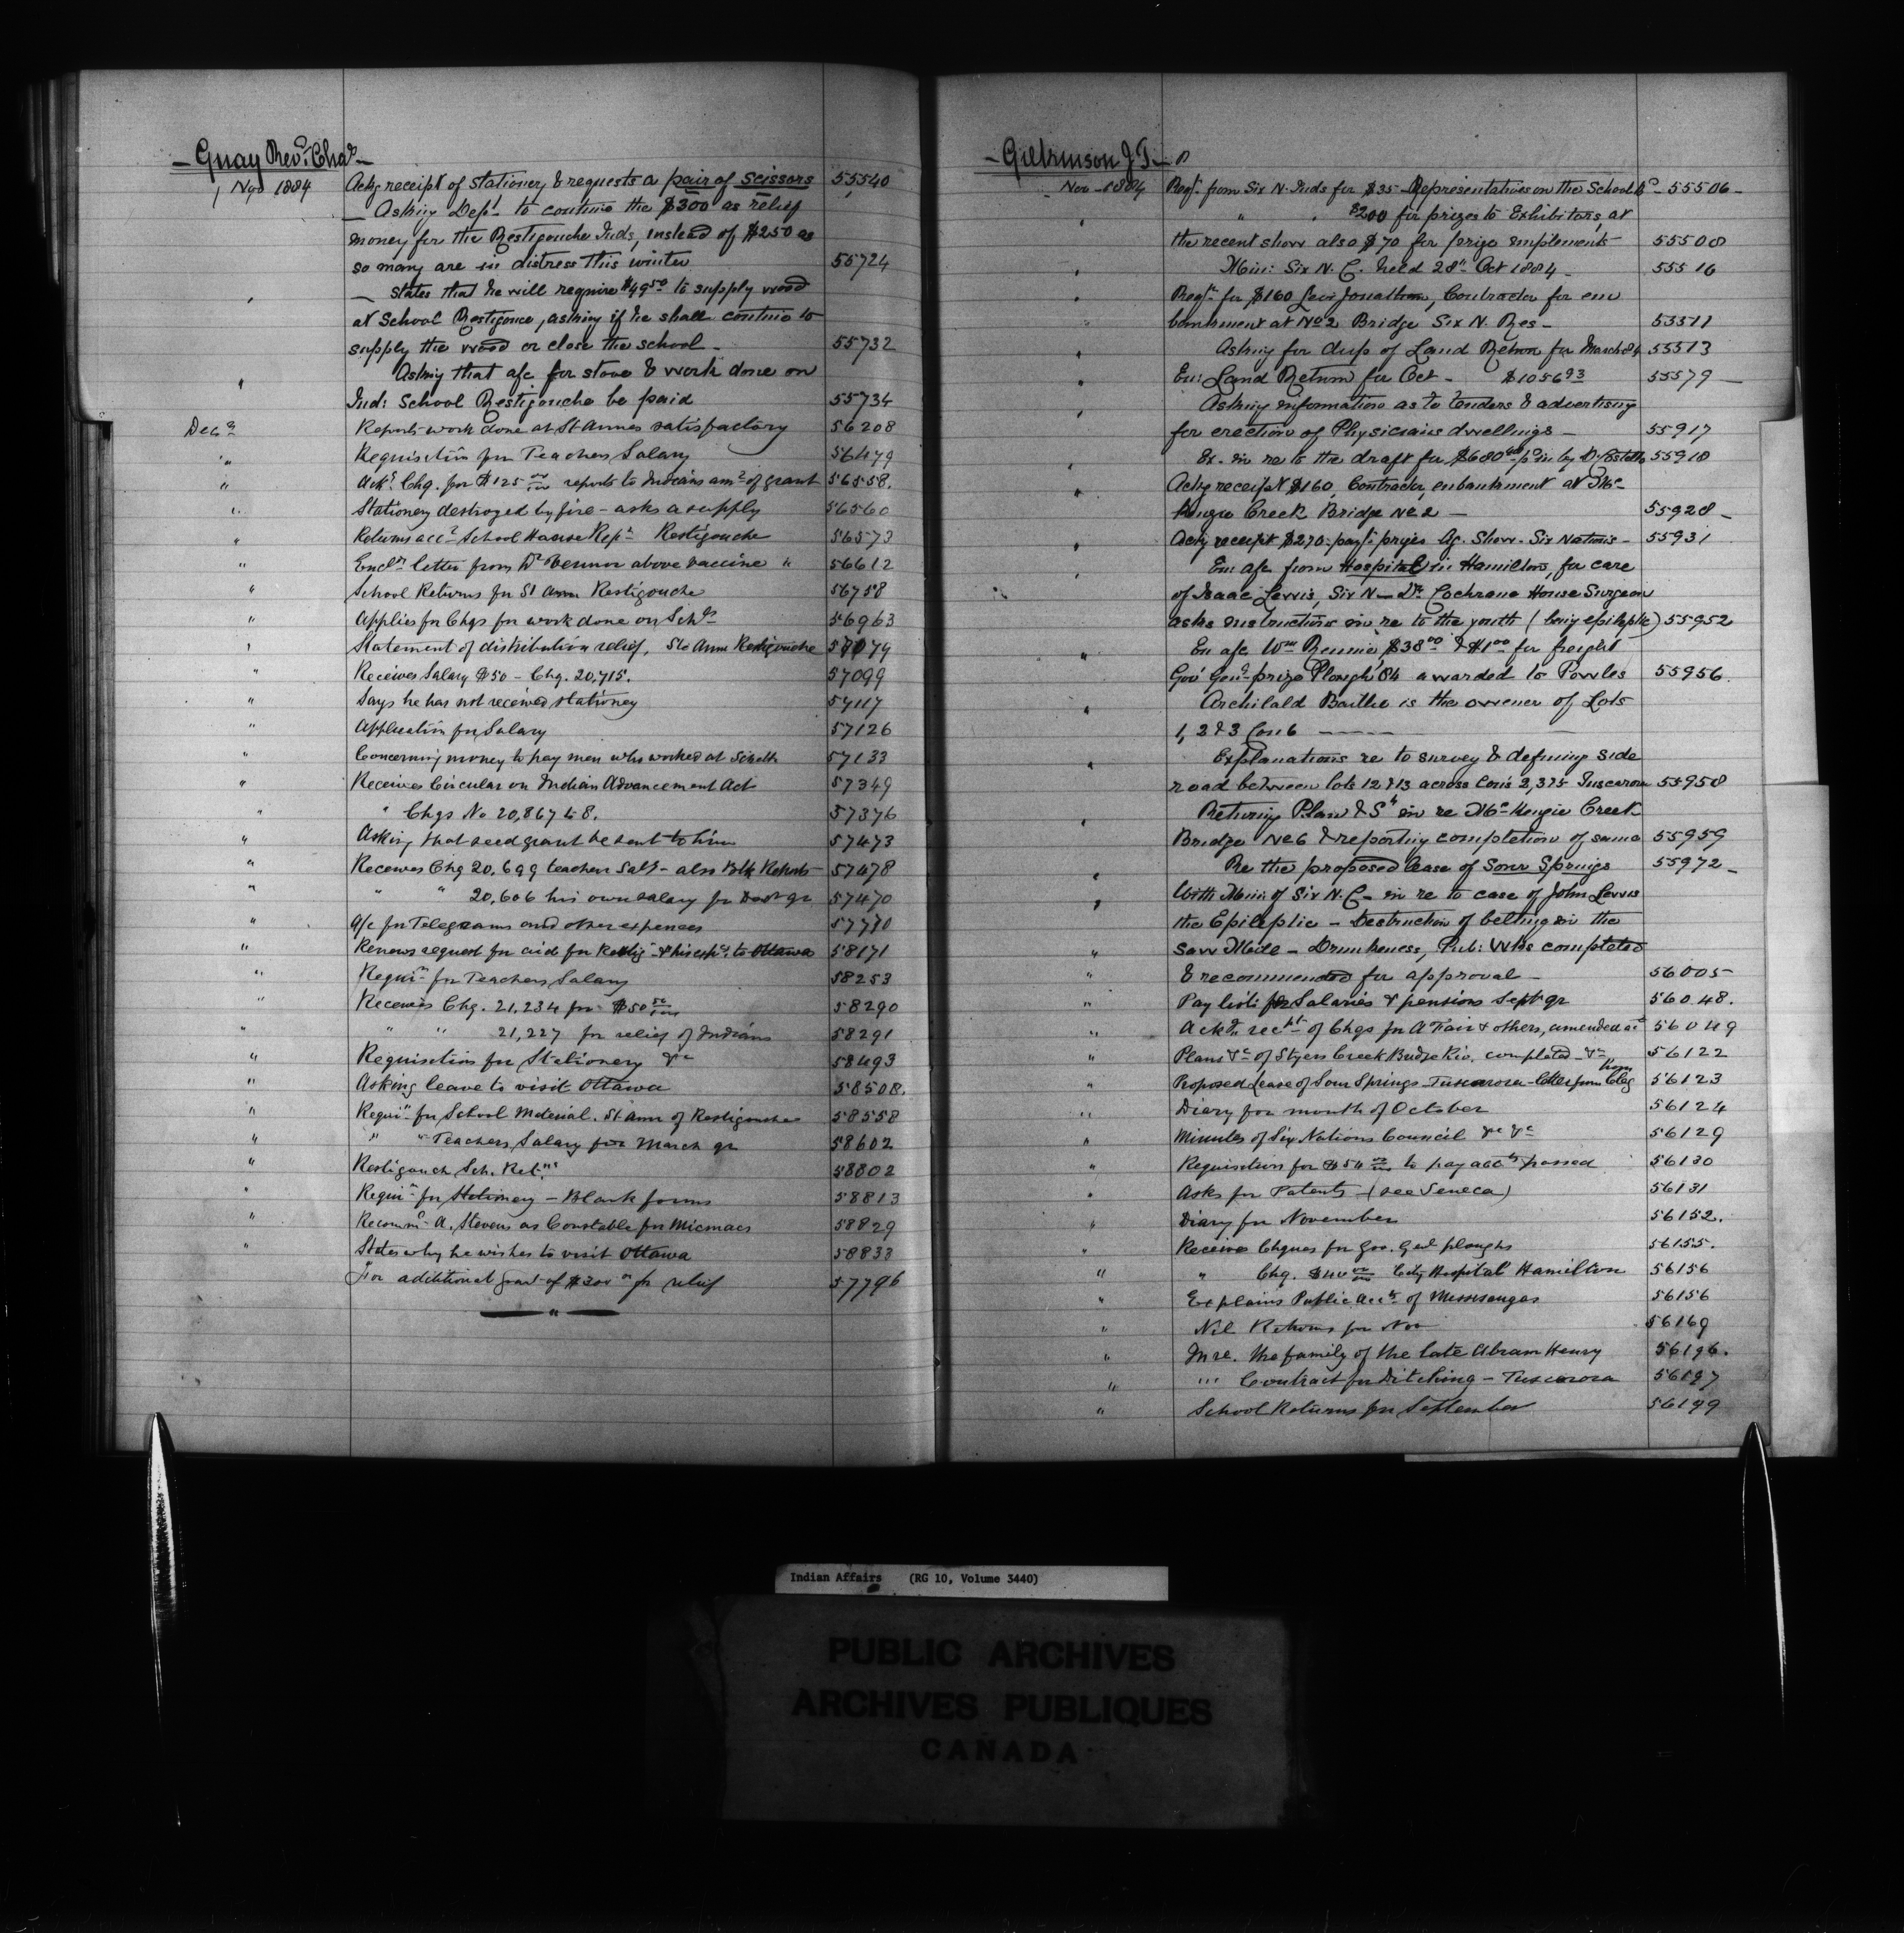 — Guay Revd. Chas —
Nov 1884 Ackg receipt of Stationery & requests a pair of Scissors 55540
— Asking Dept. to continue the $300 as relief
money for the Restigouche Inds, instead of $250 as
so many are in distress this winter 55724
" — States that he will require $49.50 to supply wood
at School Restigouce, asking if he shall continue to
supply the wood or close the school — 55732
" Asking that a/c for stove & work done on
Ind: School Restigouche be paid 55734
Decr Reports work done at St Annes satisfactory 56208
" Requisition for Teachers Salary 56479
" Ackg Chq. for $125 00/100 reports to Indians amt of grant 56558.
" Stationery destroyed by fire — asks a supply 56560
" Returns acct School House Reprs Restigouche 56573
" Encln letter from Dr Vernor above vaccine " 56612
" School Returns for St Ann Restigouche 56758
" Applies for Chqs for work done on Schls 56963
" Statement of distribution relief, Ste Anne Restigouche 57079
" Receives Salary $50 — Chq. 20,715. 57099
" Says he has not received stationery 57117
" Application for Salary 57126
" Concerning money to pay men who worked at Schls 57133
" Receives Circular on Indian Advancement Act 57349
" " Chqs No 20,867 to 8. 57376
" Asking that seed grant be sent to him 57473
" Receives Chq 20,699 teachers Saly — also Blk Returns 57478
" " " 20,606 his own salary for Sept qr 57470
" a/c for Telegrams and other expences 57770
" Renews request for aid for Restig — & his exps. to Ottawa 58171
" Requin for Teachers Salary 58253
" Receives Chq. 21,234 for $50 50/100 58290
" " " 21,227 for relief of Indians 58291
" Requisition for Stationery &c 58493
" Asking leave to visit Ottawa 58508.
" Requin for School Material. St Ann of Restigouche 58558
" " " Teachers Salary for March qr 58602
" Restigouch Sch. Retns 58802
" Requin for Stationery — Blank forms 58813
" Recommd A. Stevens as Constable for Micmacs 58829
" States why he wishes to visit Ottawa 58833
For additional grant of $300 00 for relief 57796
— " —
— Gilkinson J. T. —
Nov — 1884 Reqn. from Six N. Inds for $35 — Representatives on the School Bd — 55506 —
" " " $200 for prizes to Exhibitors, at
the recent show also $70 for prize implements 55508
" Min: Six N. C. held 28th Oct 1884 — 55516
" Reqn for $160 Levi Jonathan, Contractor for em
bankment at No 2 Bridge Six N. Res — 55511
" Asking for dup of Land Return for March 84 55513
" En: Land Return for Oct — $1056 93 55579 —
" Asking information as to tenders & advertising
for erection of Physicians dwellings — 55917
" Ex. in re to the draft for $680 00 pd in by D. Costello 55918
" Ackg receipt $160, Contractor, embankment at Mc
Kenzie Creek Bridge No 2 — 55928 —
" Ackg receipt $270 — payt. prizes Ag. Show. Six Nations — 55931
" En: a/c from Hospital in Hamilton, for care
of Isaac Lewis, Six N — Dr. Cochrane House Surgeon
asks instructions in re to the youth (being epileptic) 55952
" En a/c Wm Rennie, $38 00 & $1 00 for freight
Gov Genl prize Plough 84 awarded to Powles 55956.
" Archibald Baillie is the owner of Lots
1, 2 & 3 Con 6 —
" Explanations re to survey & defining side
road between lots 12 & 13 across Cons 2, 3 & 5 Tuscarora 55958
" Returning Plan & Sn in re McKenzie Creek
Bridge No 6 & reporting completion of same 55959
" Re the proposed lease of Sour Springs 55972 —
" With Min: of Six N. C — in re to case of John Lewis
the Epileptic — Destruction of belting in the
" Saw Mill — Drunkeness, Pub: Wks completed
" & recommended for approval — 56005
" Pay lists for Salaries & pensions Sept qr 56048.
" Ackds. rect of Chqs for A Fair & others, amended a/c 56049
" Plans &c of Styers Creek Bridge Riv. completed &c 56122
" Proposed Lease of Sour Springs — Tuscarora — letter from 56123
" Diary for month of October 56124
" Minutes of Six Nations Council &c &c 56129
" Requisition for $54 00/100 to pay accts passed 56130
" Asks for Patents — (see Seneca) 56131
" Diary for November 56152.
" Receives Chques for Gov. Genl ploughs 56155.
" " Chq. $40 00/100 City Hospital Hamilton 56156
" Explains Public Accts of Mississaugas 56156
" Nil Returns for Nov 56169
" In re. the family of the late Abram Henry 56196.
" " Contract for Ditching — Tuscarora 56197
" School Returns for September 56199
Indian Affairs (RG 10, Volume 3440)
PUBLIC ARCHIVES
ARCHIVES PUBLIQUES
CANADA